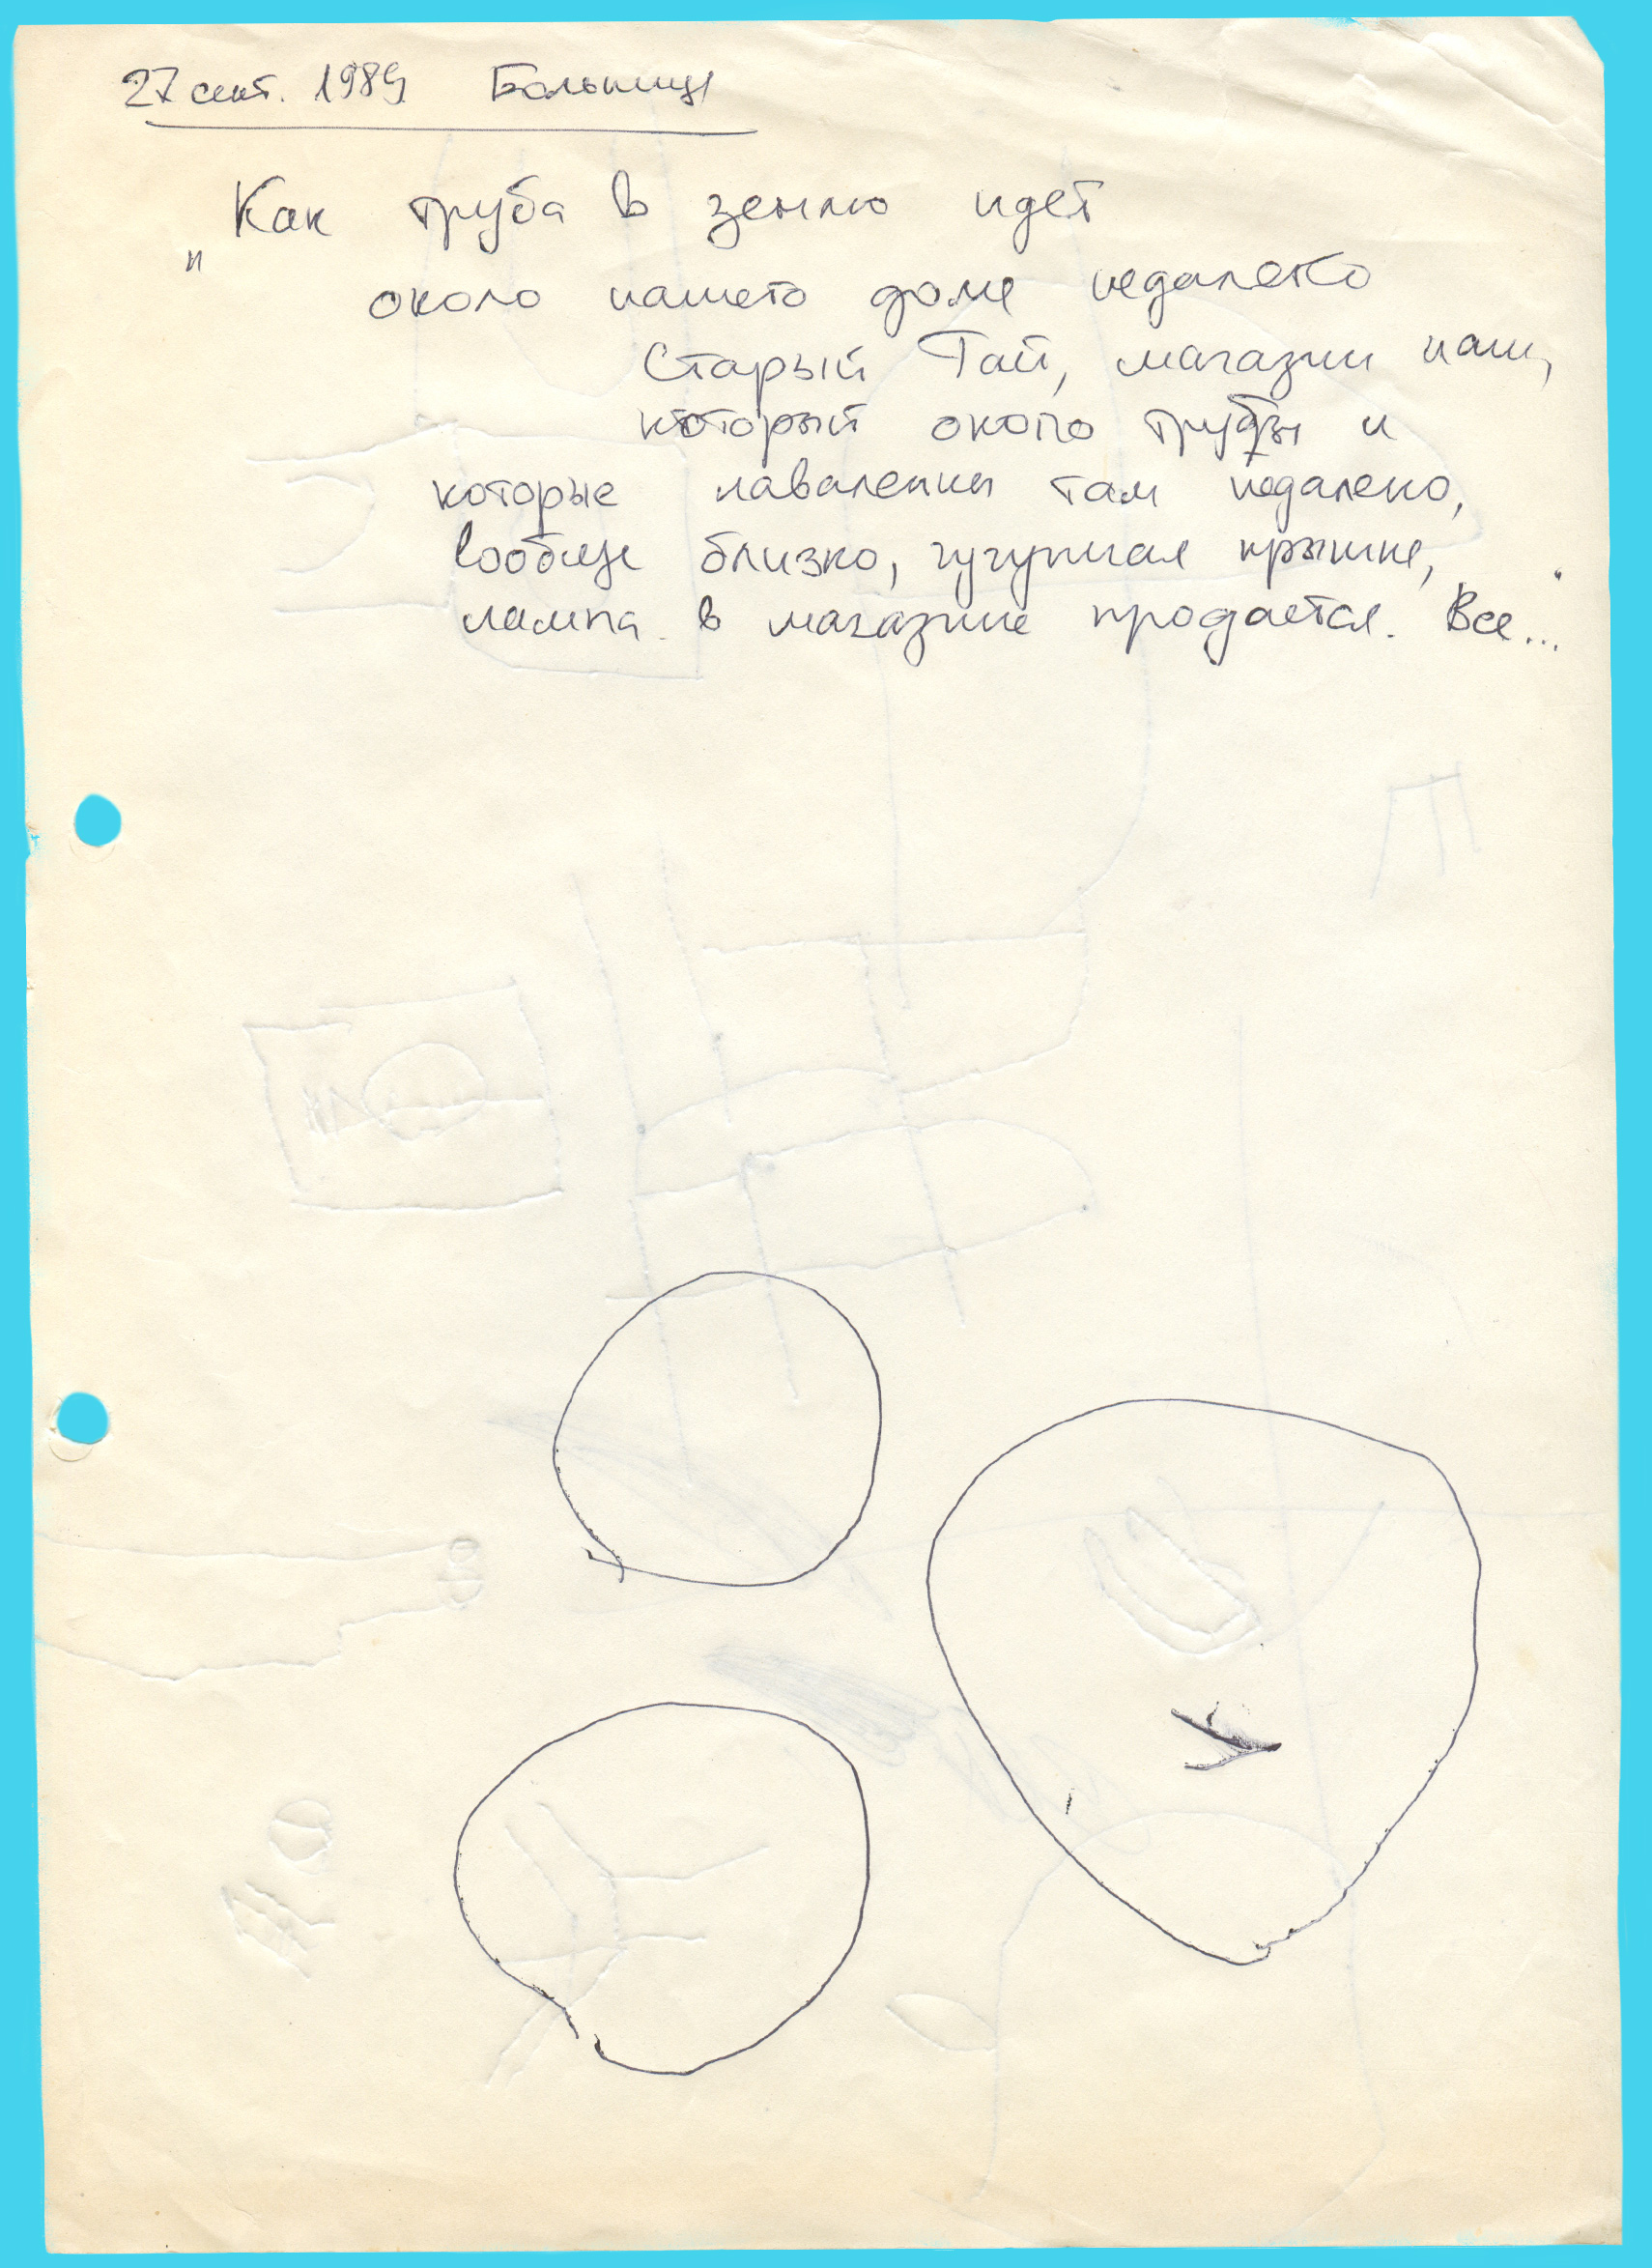 27 сент. 1989 Больница
"Как труба в землю идет
около нашего дома недалеко
Старый Гай, магазин наш,
который около трубы и
которые навалены там недалеко,
вообще близко, чугунная крышка,
лампа в магазине продается. Все..."